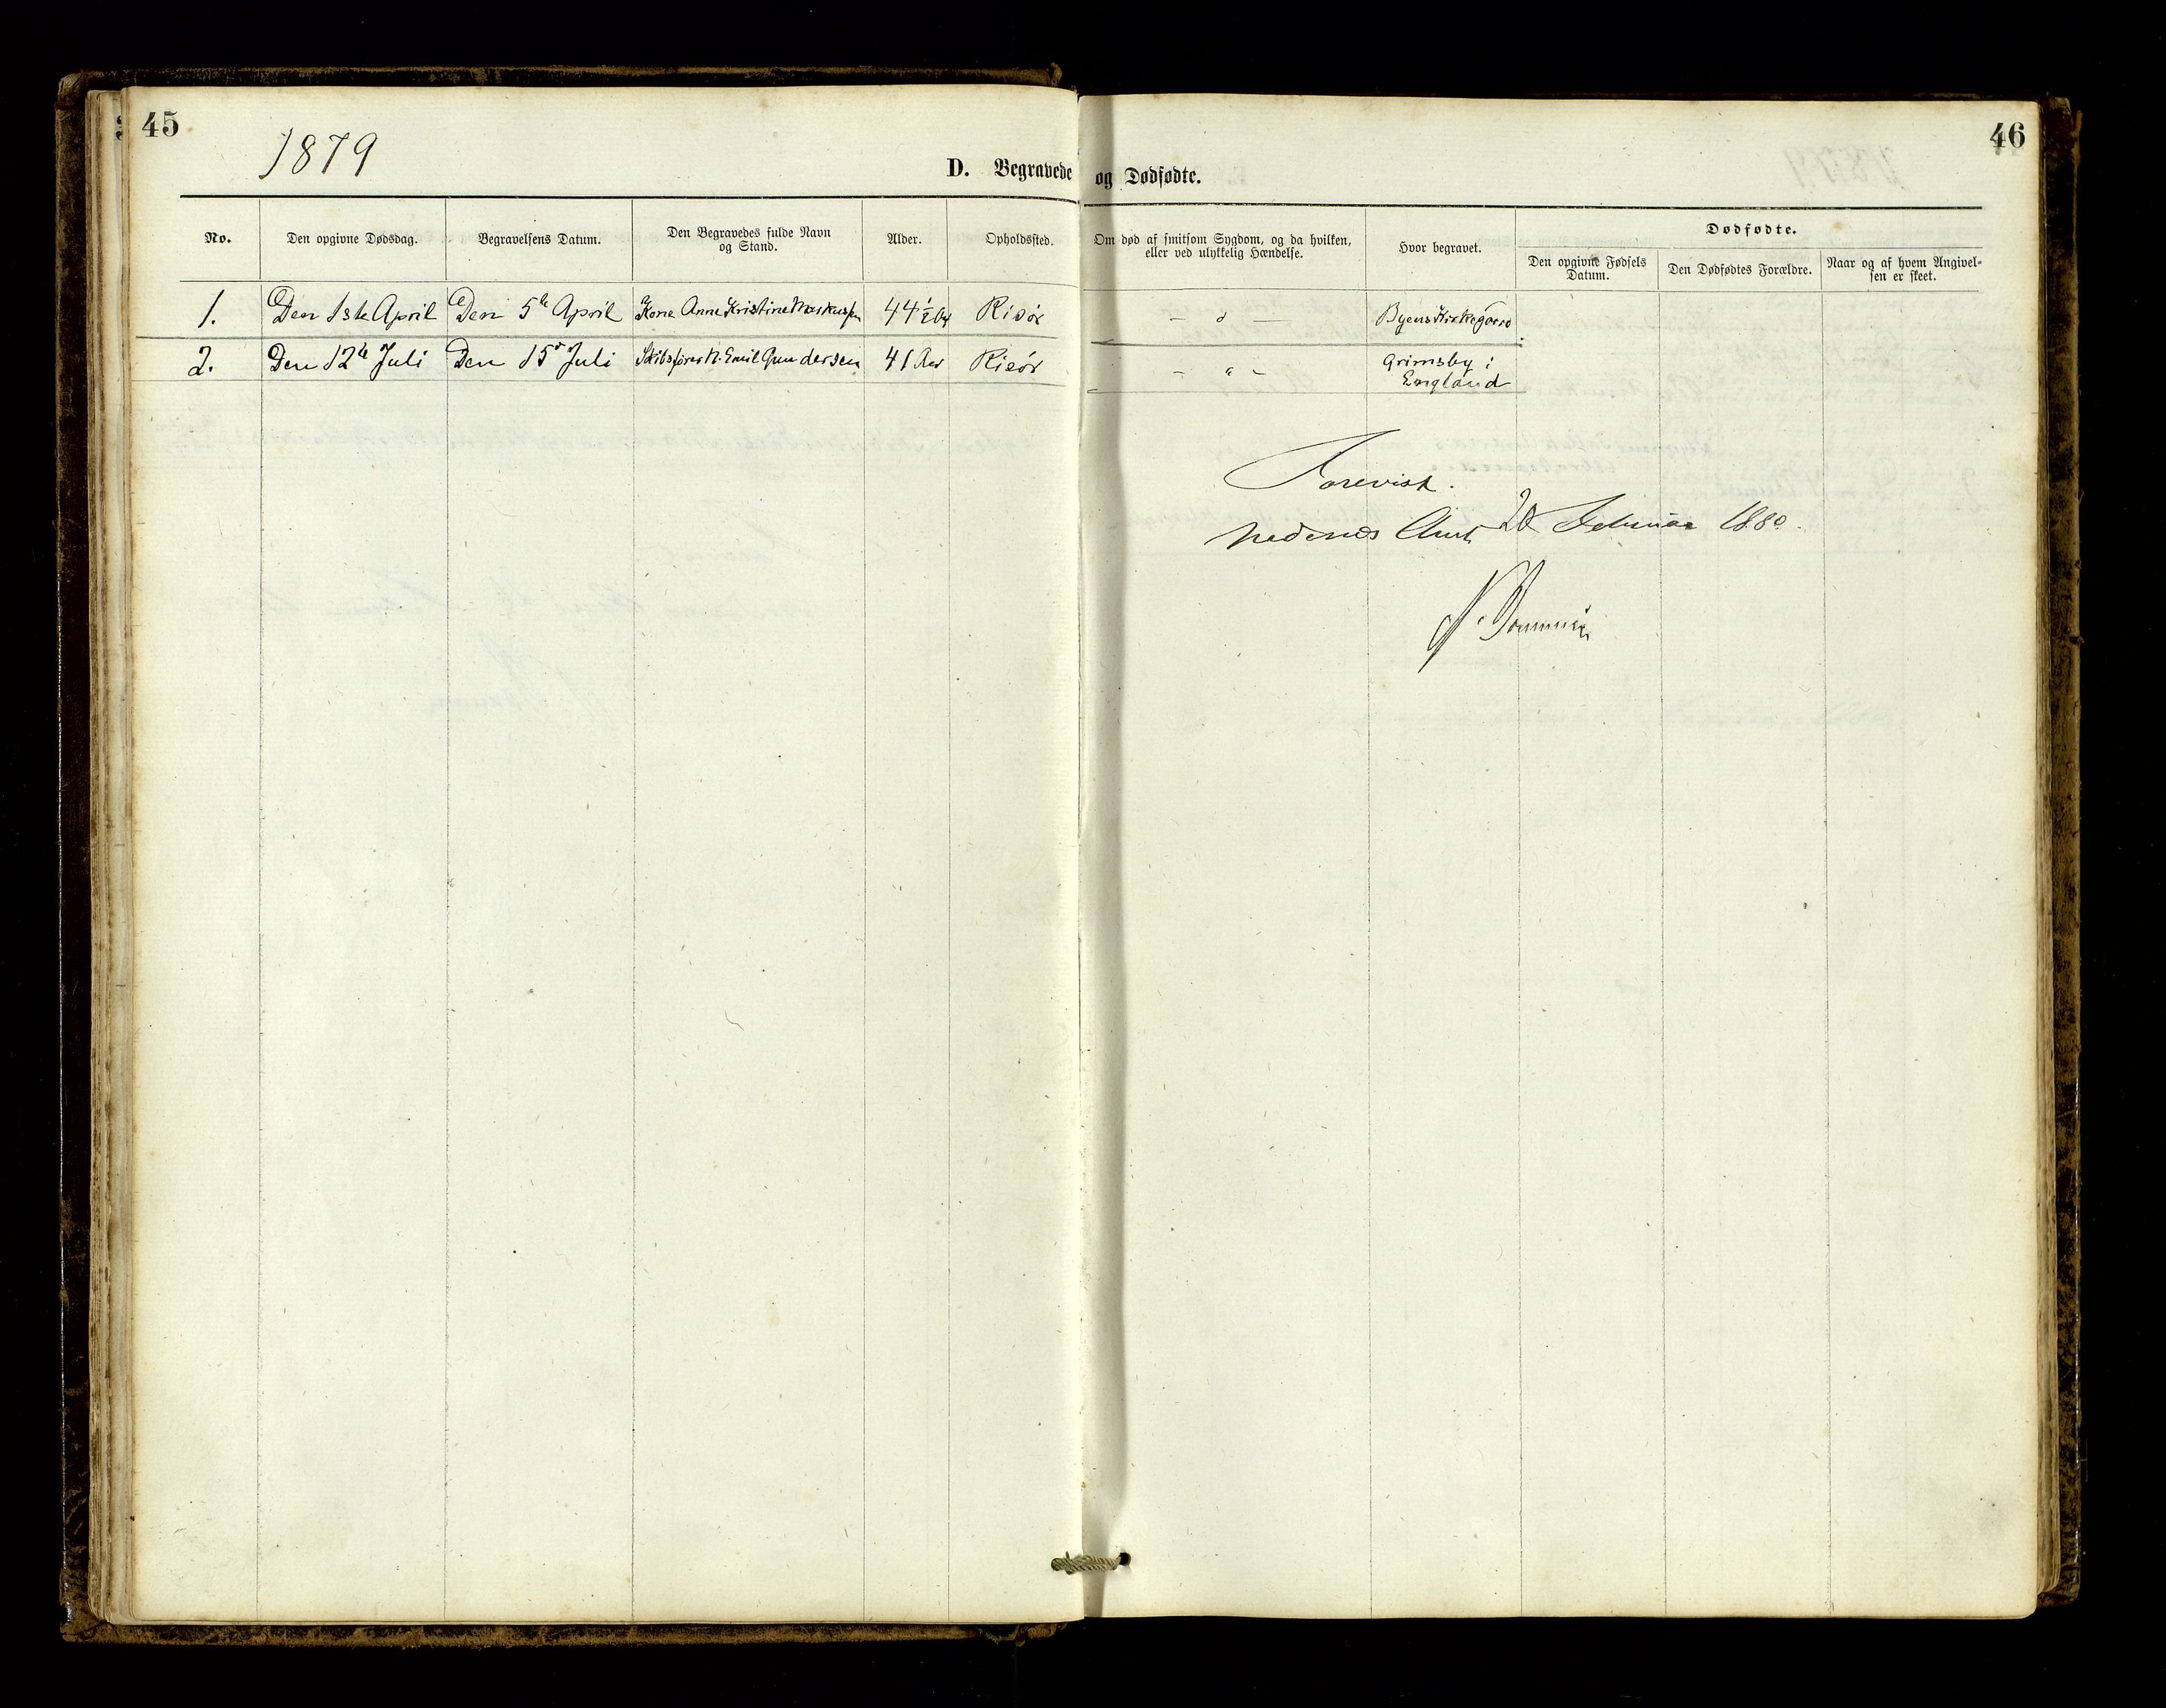 45
46
1879
D. Begravede og Dødfødte.
No.
Den opgivne Dødsdag.
Begravelsens Datum.
Den Begravedes fulde Navn
og Stand.
Alder.
Opholdssted.
Om død af smitsom Sygdom, og da hvilken,
eller ved ulykkelig Hændelse.
Hvor begravet.
Dødfødte.
Den opgivne Fødsels
Datum.
Den Dødfødtes Forældre.
Naar og af hvem Angivel-
sen er skeet.
1. Den 1ste April Den 5te April Kone Anne Kristine 44 1/2 Risör — " — Byens Kirkegård
2. Den 12te Juli Den 15de Juli Skibsfører N. Emil Gundersen 41 Aar Risör — " — Grimsby i
England
Forevist.
Nedenes Amt 20 Februar 1880.